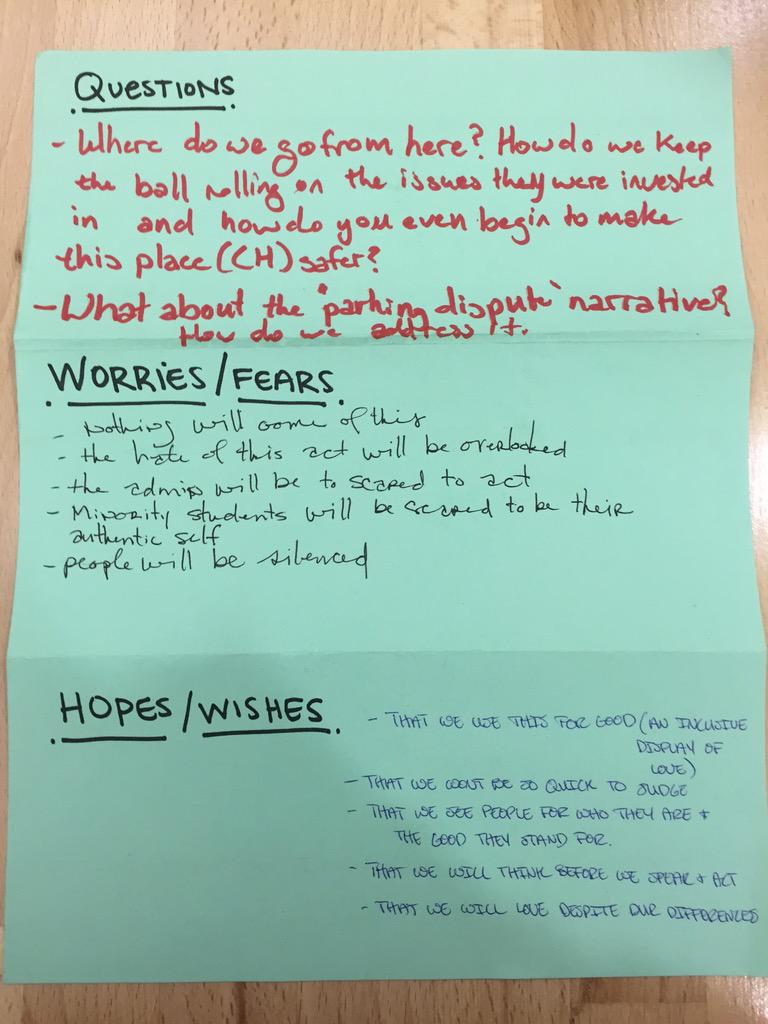 QUESTIONS
- Where do we go from here? How do we keep
the ball rolling on the issues they were invested
in and how do you even begin to make
this place (CH) safer?
- What about the "parking dispute" narrative?
How do we address it.
WORRIES/FEARS
- Nothing will come of this
- the hate of this act will be overlooked
- the admin will be to scared to act
- Minority students will be scared to be their
authentic self
- people will be silenced
HOPES/WISHES
- THAT WE USE THIS FOR GOOD (AN INCLUSIVE
DISPLAY OF
LOVE)
- THAT WE WONT BE SO QUICK TO JUDGE
- THAT WE SEE PEOPLE FOR WHO THEY ARE +
THE GOOD THEY STAND FOR.
- THAT WE WILL THINK BEFORE WE SPEAK + ACT
- THAT WE WILL LOVE DESPITE OUR DIFFERENCES